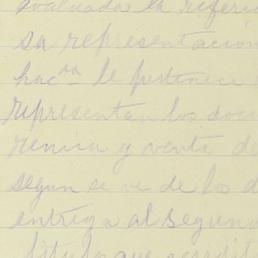 evaluada la referi
sa representación
hac.da le pertenece
representan los docu
renuncia y venta de
segun se ve de los d
entrega al segun
título que acredit